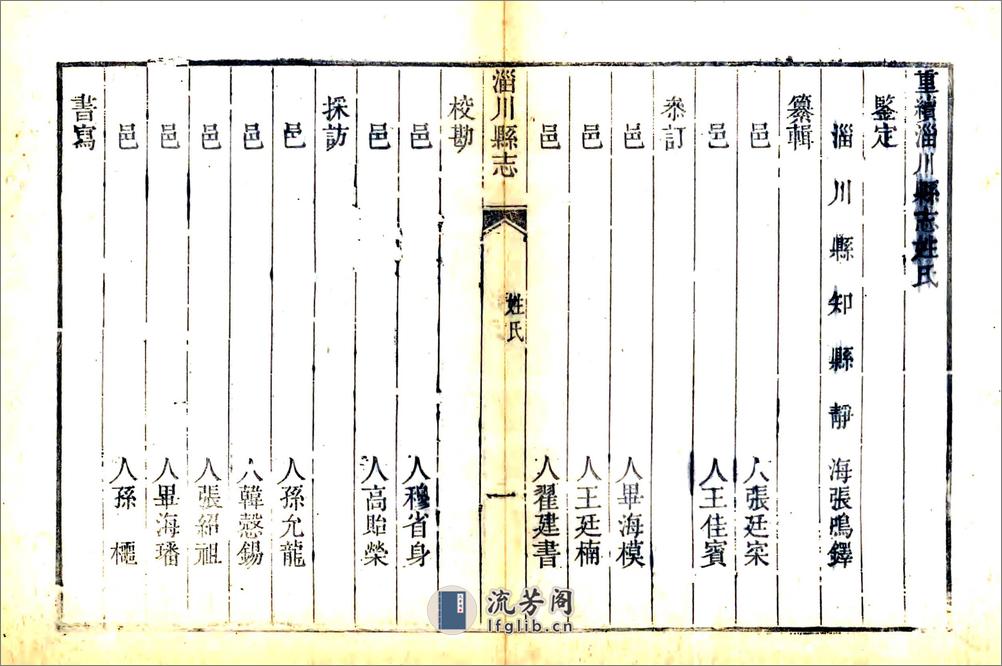 重續淄川縣志姓氏
鑒定
淄川縣知縣靜海張鳴鐸
纂輯
邑人張廷寀
邑人王佳賓
叅訂
邑人畢海模
邑人王廷楠
邑人翟建書
淄川縣志
姓氏
一
校勘
邑人穆省身
邑人高貽榮
採訪
邑人孫允龍
邑人韓慤錫
邑人張紹祖
邑人畢海璠
邑人孫櫺
書寫
流芳阁
lfglib.cn